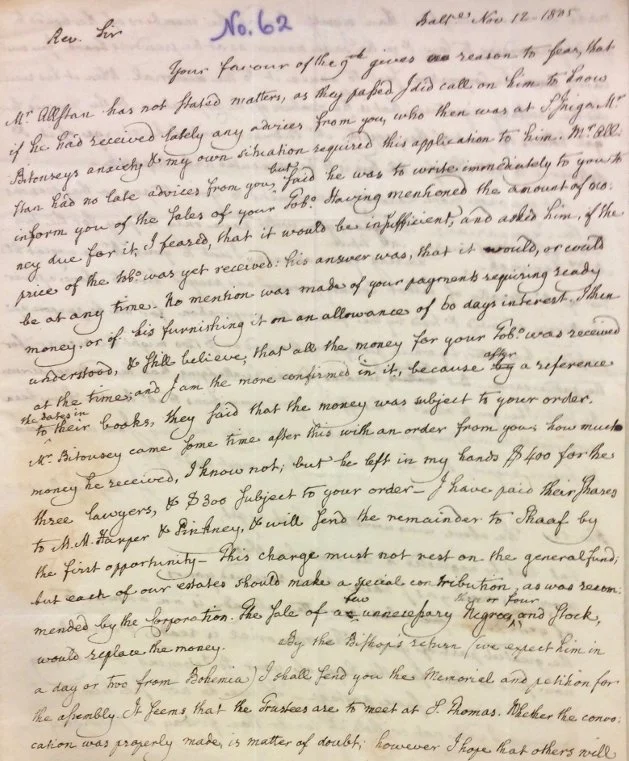 No. 62
Balt.e Nov. 12 - 1805
Rev. Sir
Your favour of the 9th gives reason to fear, that
Mr Allstan has not stated matters, as they passed. I did call on him to know
if he had received lately any advices from you, who then was at S. Inigo. Mr
Bitouseys anxiety & my own situation required this application to him. Mr All-
stan had no late advices from you, but said he was to write immediately to you to
inform you of the sales of your Tobo. Having mentioned the amount of mo-
ney due for it, I feared, that it would be insufficient, and asked him, if the
price of the Tobo. was yet received: his answer was, that it would, or could
be at any time. No mention was made of your payments requiring ready
money, or of his furnishing it on an allowance of 60 days interest. I then
understood, & still believe, that all the money for your Tobo. was received
at the time; and I am the more confirmed in it, because by after a reference
to the dates in their books, they said that the money was subject to your order.
Mr. Bitousey came some time after this with an order from you; how much
money he received, I know not; but he left in my hands $400 for the
three lawyers, & $300 subject to your order - I have paid their shares
to M.M. Harper & Pinkney, & will send the remainder to Shaaf by
the first opportunity - This charge must not rest on the general fund;
but each of our estates should make a special contribution, as was recom-
mended by the Corporation. The sale of a few unnecessary Negroes, three or four, and Stock,
would replace the money. By the Bishop's return (we expect him in
a day or two from Bohemia) I shall send you the Memoriel and petition for
the assembly. It seems that the Trustees are to meet at S. Thomas. Whether the convo-
cation was properly made, is matter of doubt; however I hope that others will